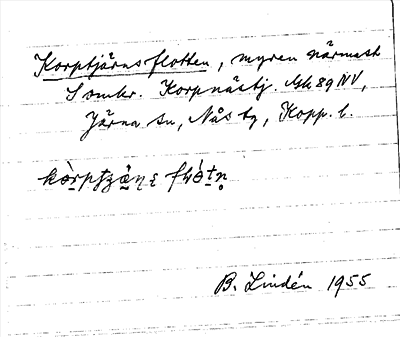 Korptjärnsflotten, myren närmast
S omkr. Korpnästj. Gk 89 NV,
Järna sn, Nås tg, Kopp. l.
B. Lindén 1955